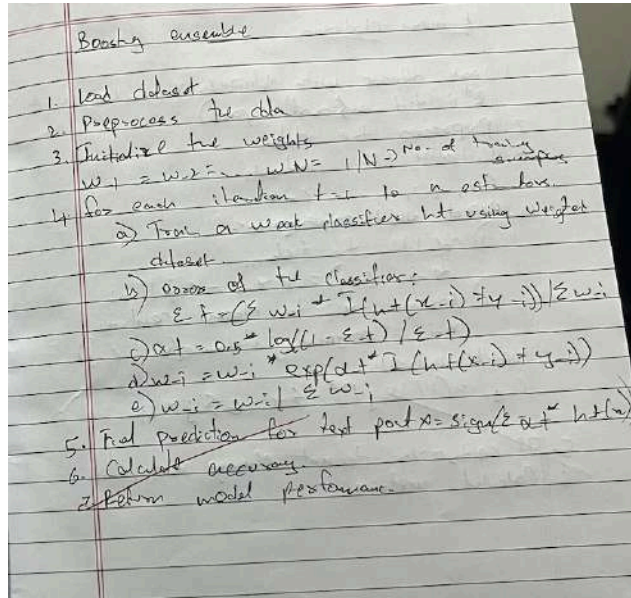 Boosting ensemble
1. Load dataset
2. Preprocess the data
3. Initialize the weights
w-1 = w-2 = .... wN = 1/N → No. of training samples
4. for each iteration t=1 to n estimators.
a) Train a weak classifier ht using weighted
dataset.
b) error of the classifier:
Σt = (Σ w-i * I(ht(x-i) ≠ y-i)) / Σ w-i
c) αt = 0.5 * log((1 - Σt) / Σt)
d) w-i = w-i * exp(αt * I(ht(x-i) ≠ y-i))
e) w-i = w-i / Σ w-i
5. Final prediction for test point x = sign(Σ αt * ht(x)
6. Calculate accuracy.
7. Return model performance.